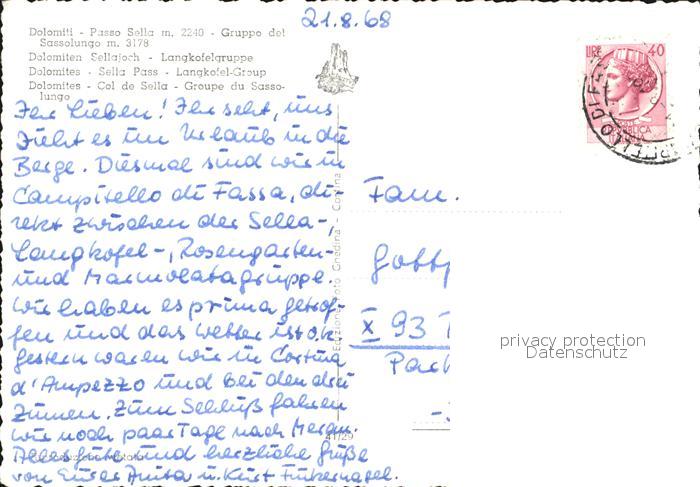 21.8.68
Dolomiti - Passo Sella m. 2240 - Gruppo del
Sassolungo m. 3178
Dolomiten Sellajoch - Langkofelgruppe
Dolomites - Sella Pass - Langkofel-Group
Dolomites - Col de Sella - Groupe du Sasso-
lungo
LIRE 40
Ihr Lieben! Ihr seht, uns
zieht es im Urlaub in die
Berge. Diesmal sind wir in
Campitello di Fassa, di-
rekt zwischen der Sella-,
Langkofel-, Rosengarten-
und Marmolatagruppe.
Wir haben es prima getrof-
fen und das Wetter ist o.k.
gestern waren wir in Cortina
d'Ampezzo und bei den drei
Zinnen. Zum Schluß fahren
wir noch paar Tage nach Meran.
Alles Gute und herzliche Grüße
von Eurer Anita u. Kurt Finkernagel.
Fam.
X 93
privacy protection
Datenschutz
41/29